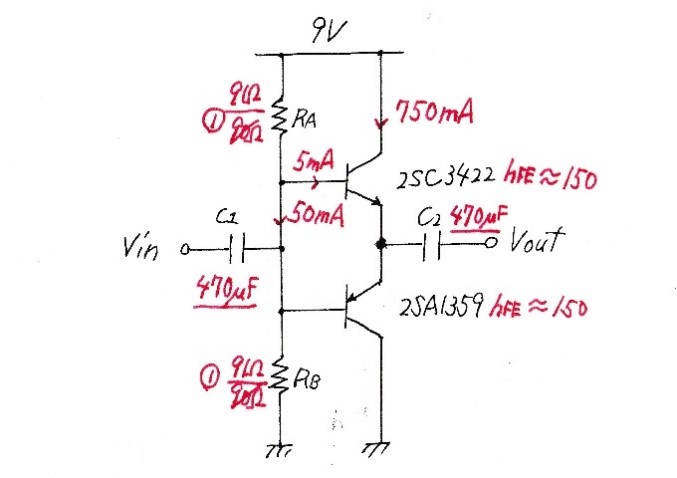 9V
91Ω
① 90Ω RA
750mA
5mA
2SC3422 hFE≈150
50mA
C1
C2 470μF
Vin
Vout
470μF
2SA1359 hFE≈150
① 91Ω
90Ω RB